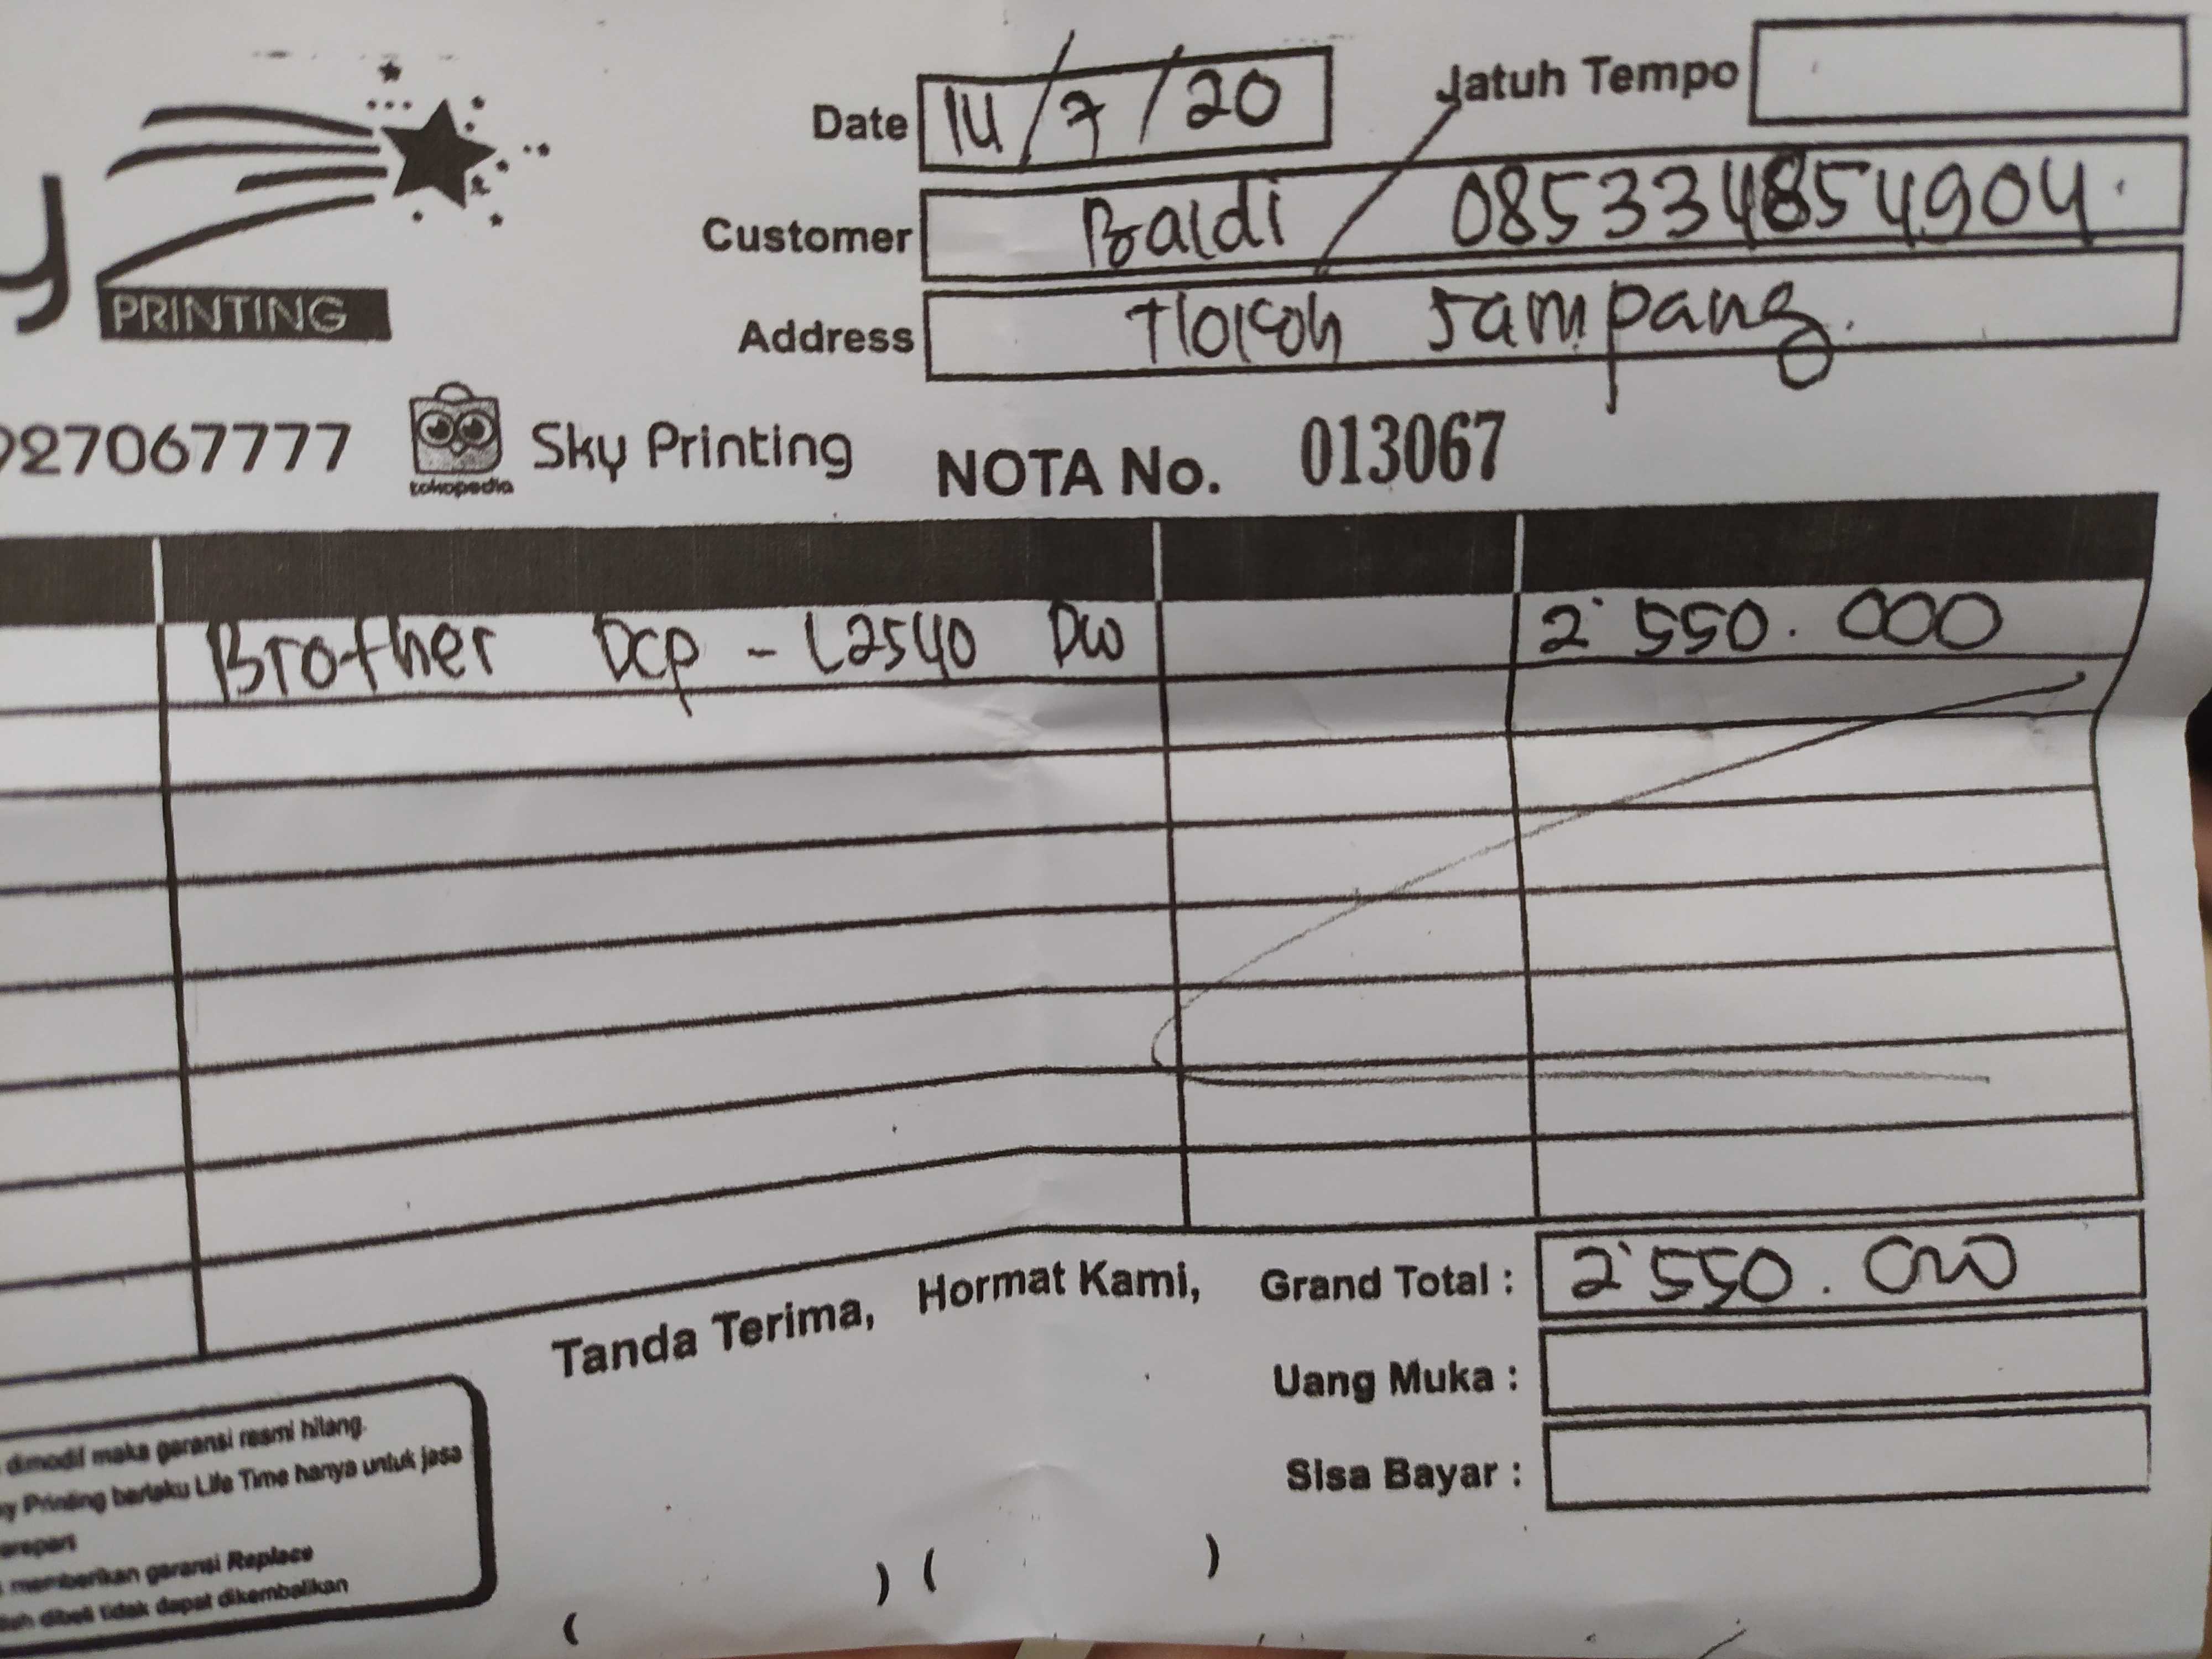 Date 14/7/20 Jatuh Tempo
Customer Baldi 085334854904
y
PRINTING
Address Sampang
927067777 tokopedia Sky Printing NOTA No. 013067
Brother DCP - L2540 DW 2'550.000
Tanda Terima, Hormat Kami, Grand Total : 2'550.000
Uang Muka :
Sisa Bayar :
dimodif maka garansi resmi hilang.
y Printing berlaku Life Time hanya untuk jasa
arepart
memberikan garansi Replace
dibeli tidak dapat dikembalikan
( ) ( )